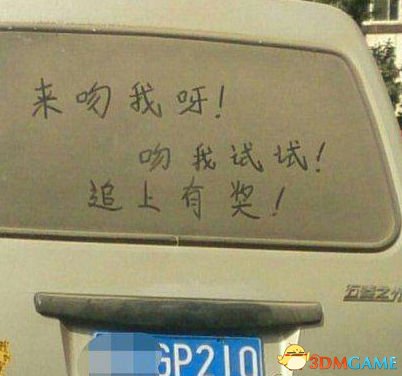 来吻我呀！
吻我试试！
追上有奖！
五菱之光
GP210
3DMGAME